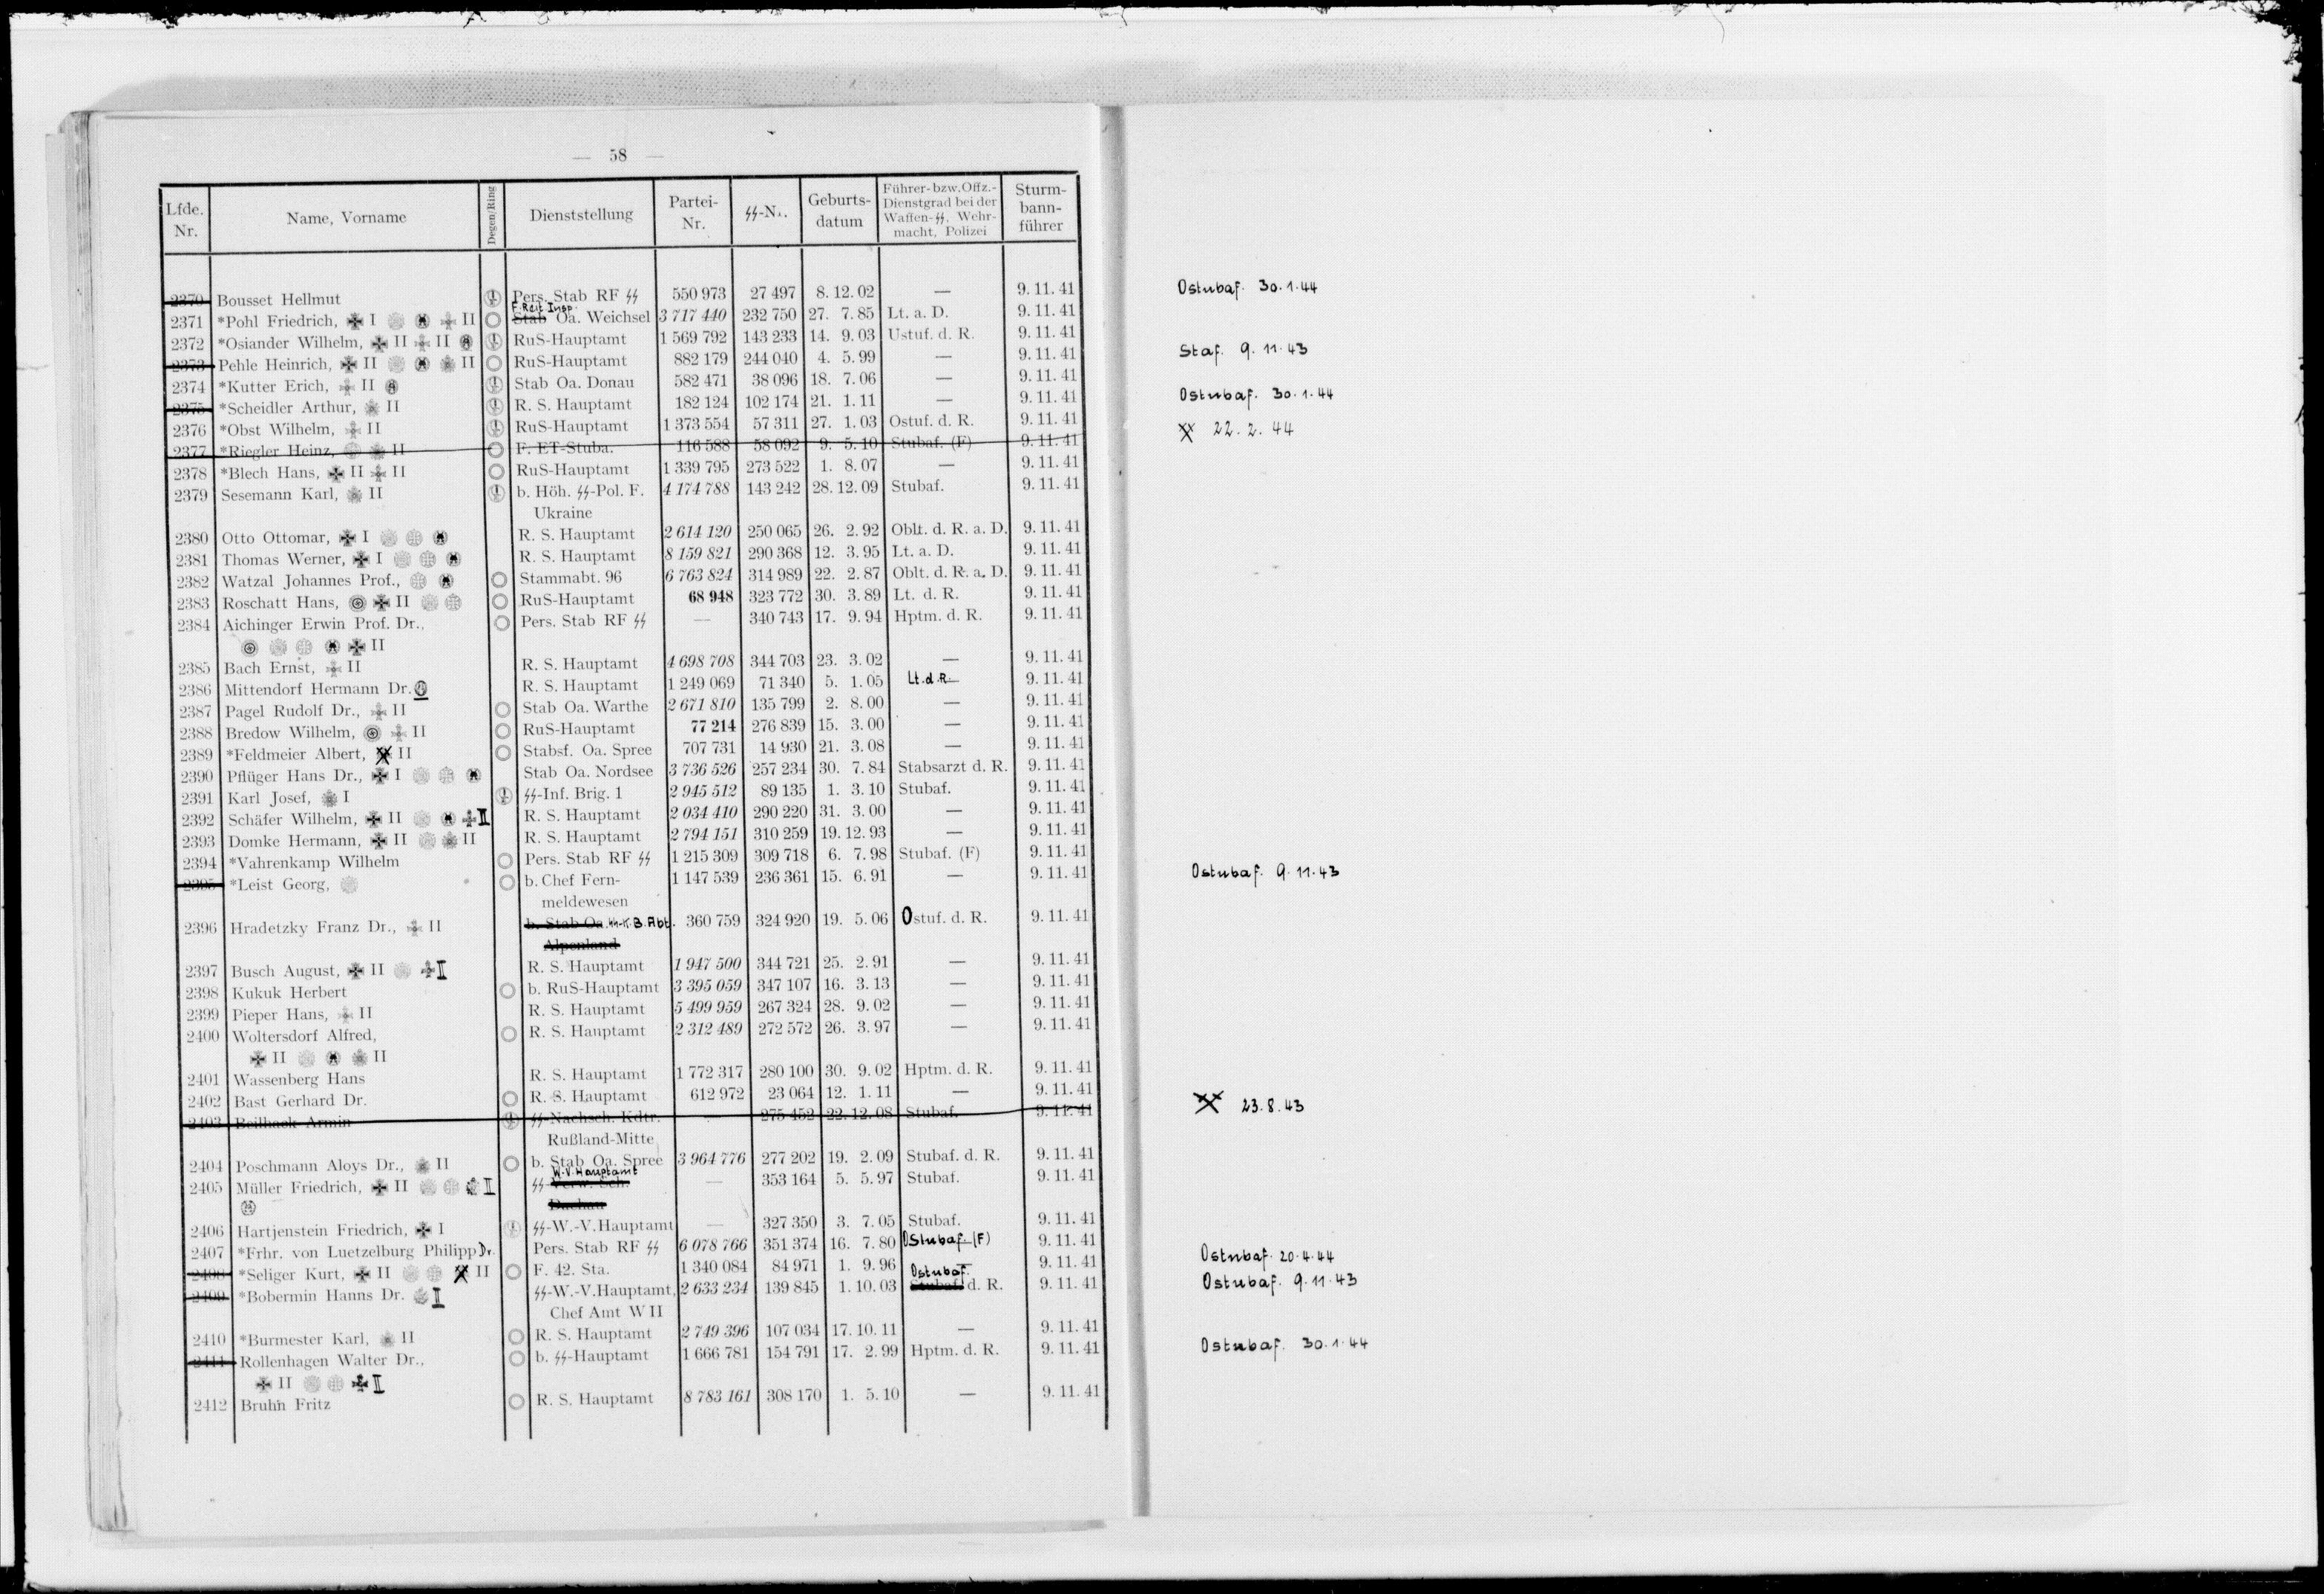 — 58 —
Lfde. Nr. Name, Vorname Degen/Ring Dienststellung Partei-Nr. SS-Nr. Geburts-datum Führer- bzw. Offz.-Dienstgrad bei der Waffen-SS, Wehr-macht, Polizei Sturm-bann-führer
2370 Bousset Hellmut Pers. Stab RF SS 550 973 27 497 8. 12. 02 — 9. 11. 41 Ostubaf. 30.1.44
F. Reit Insp.
2371 *Pohl Friedrich, I II Stab Oa. Weichsel 3 717 440 232 750 27. 7. 85 Lt. a. D. 9. 11. 41
2372 *Osiander Wilhelm, II II RuS-Hauptamt 1 569 792 143 233 14. 9. 03 Ustuf. d. R. 9. 11. 41
2373 Pehle Heinrich, II II RuS-Hauptamt 882 179 244 040 4. 5. 99 — 9. 11. 41 Staf. 9.11.43
2374 *Kutter Erich, II Stab Oa. Donau 582 471 38 096 18. 7. 06 — 9. 11. 41
2375 *Scheidler Arthur, II R. S. Hauptamt 182 124 102 174 21. 1. 11 — 9. 11. 41 Ostubaf. 30.1.44
2376 *Obst Wilhelm, II RuS-Hauptamt 1 373 554 57 311 27. 1. 03 Ostuf. d. R. 9. 11. 41
2377 *Riegler Heinz, II F. ET-Stuba. 116 588 58 092 9. 5. 10 Stubaf. (F) 9. 11. 41 22.2.44
2378 *Blech Hans, II II RuS-Hauptamt 1 339 795 273 522 1. 8. 07 — 9. 11. 41
2379 Sesemann Karl, II b. Höh. SS-Pol. F. 4 174 788 143 242 28. 12. 09 Stubaf. 9. 11. 41
Ukraine
2380 Otto Ottomar, I R. S. Hauptamt 2 614 120 250 065 26. 2. 92 Oblt. d. R. a. D. 9. 11. 41
2381 Thomas Werner, I R. S. Hauptamt 8 159 821 290 368 12. 3. 95 Lt. a. D. 9. 11. 41
2382 Watzal Johannes Prof., Stammabt. 96 6 763 824 314 989 22. 2. 87 Oblt. d. R. a. D. 9. 11. 41
2383 Roschatt Hans, II RuS-Hauptamt 68 948 323 772 30. 3. 89 Lt. d. R. 9. 11. 41
2384 Aichinger Erwin Prof. Dr., Pers. Stab RF SS — 340 743 17. 9. 94 Hptm. d. R. 9. 11. 41
II
2385 Bach Ernst, II R. S. Hauptamt 4 698 708 344 703 23. 3. 02 — 9. 11. 41
2386 Mittendorf Hermann Dr. R. S. Hauptamt 1 249 069 71 340 5. 1. 05 Lt. d. R. 9. 11. 41
2387 Pagel Rudolf Dr., II Stab Oa. Warthe 2 671 810 135 799 2. 8. 00 — 9. 11. 41
2388 Bredow Wilhelm, II RuS-Hauptamt 77 214 276 839 15. 3. 00 — 9. 11. 41
2389 *Feldmeier Albert, II Stabsf. Oa. Spree 707 731 14 930 21. 3. 08 — 9. 11. 41
2390 Pflüger Hans Dr., I Stab Oa. Nordsee 3 736 526 257 234 30. 7. 84 Stabsarzt d. R. 9. 11. 41
2391 Karl Josef, I SS-Inf. Brig. 1 2 945 512 89 135 1. 3. 10 Stubaf. 9. 11. 41
2392 Schäfer Wilhelm, II II R. S. Hauptamt 2 034 410 290 220 31. 3. 00 — 9. 11. 41
2393 Domke Hermann, II II R. S. Hauptamt 2 794 151 310 259 19. 12. 93 — 9. 11. 41
2394 *Vahrenkamp Wilhelm Pers. Stab RF SS 1 215 309 309 718 6. 7. 98 Stubaf. (F) 9. 11. 41
2395 *Leist Georg, b. Chef Fern- 1 147 539 236 361 15. 6. 91 — 9. 11. 41 Ostubaf. 9.11.43
meldewesen
2396 Hradetzky Franz Dr., II b. Stab Oa. SS-K.B.Abt. 360 759 324 920 19. 5. 06 Ostuf. d. R. 9. 11. 41
Alpenland
2397 Busch August, II II R. S. Hauptamt 1 947 500 344 721 25. 2. 91 — 9. 11. 41
2398 Kukuk Herbert b. RuS-Hauptamt 3 395 059 347 107 16. 3. 13 — 9. 11. 41
2399 Pieper Hans, II R. S. Hauptamt 5 499 959 267 324 28. 9. 02 — 9. 11. 41
2400 Woltersdorf Alfred, R. S. Hauptamt 2 312 489 272 572 26. 3. 97 — 9. 11. 41
II II
2401 Wassenberg Hans R. S. Hauptamt 1 772 317 280 100 30. 9. 02 Hptm. d. R. 9. 11. 41
2402 Bast Gerhard Dr. R. S. Hauptamt 612 972 23 064 12. 1. 11 — 9. 11. 41
2403 Beilhack Armin SS-Nachsch. Kdtr. — 275 452 22. 12. 08 Stubaf. 9. 11. 41 23.8.43
Rußland-Mitte
2404 Poschmann Aloys Dr., II b. Stab Oa. Spree 3 964 776 277 202 19. 2. 09 Stubaf. d. R. 9. 11. 41
W.V.Hauptamt
2405 Müller Friedrich, II II SS-Verw. Sch. — 353 164 5. 5. 97 Stubaf. 9. 11. 41
Dachau
2406 Hartjenstein Friedrich, I SS-W.-V.Hauptamt — 327 350 3. 7. 05 Stubaf. 9. 11. 41
2407 *Frhr. von Luetzelburg Philipp Dr. Pers. Stab RF SS 6 078 766 351 374 16. 7. 80 OStubaf. (F) 9. 11. 41
2408 *Seliger Kurt, II II F. 42. Sta. 1 340 084 84 971 1. 9. 96 — 9. 11. 41 Ostubaf. 20.4.44
Ostubaf.
2409 *Bobermin Hanns Dr. II SS-W.-V.Hauptamt, 2 633 234 139 845 1. 10. 03 Stubaf. d. R. 9. 11. 41 Ostubaf. 9.11.43
Chef Amt W II
2410 *Burmester Karl, II R. S. Hauptamt 2 749 396 107 034 17. 10. 11 — 9. 11. 41
2411 Rollenhagen Walter Dr., b. SS-Hauptamt 1 666 781 154 791 17. 2. 99 Hptm. d. R. 9. 11. 41 Ostubaf. 30.1.44
II II
2412 Bruhn Fritz R. S. Hauptamt 8 783 161 308 170 1. 5. 10 — 9. 11. 41